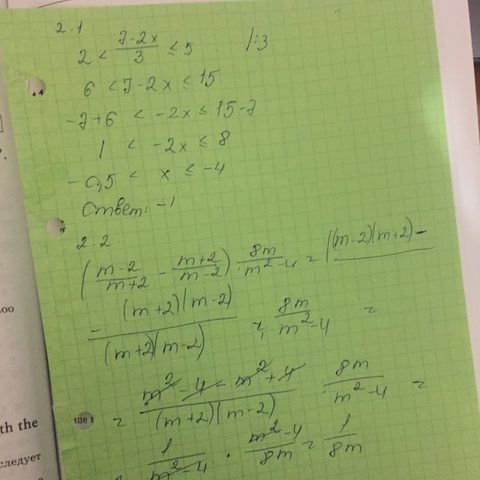 2.1
2 < 7-2x/3 ≤ 5 |:3
6 < 7-2x ≤ 15
-7+6 < -2x ≤ 15-7
1 < -2x ≤ 8
-0,5 < x ≤ -4
Ответ: -1
2.2
(m-2/m+2 - m+2/m-2) : 8m/m²-4 = ((m-2)(m+2) -
- (m+2)(m-2)/(m+2)(m-2) : 8m/m²-4 =
= m²-4-m²+4/(m+2)(m-2) : 8m/m²-4 =
= 1/m²-4 · m²-4/8m = 1/8m
th the
следует